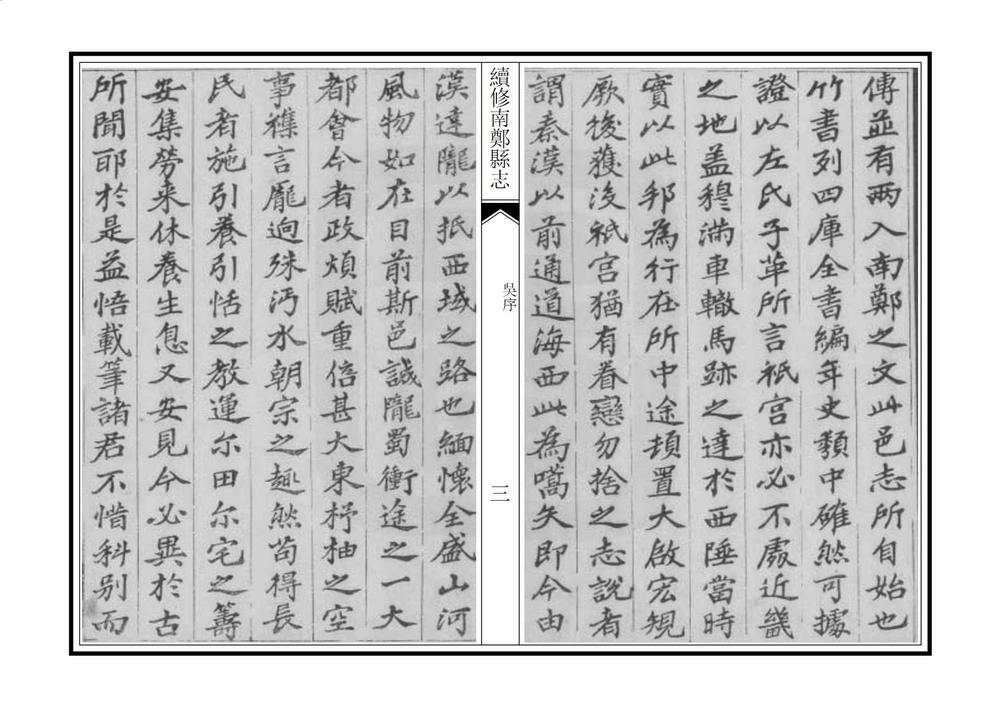 傳並有兩入南鄭之文此邑志所自始也
竹書列四庫全書編年史類中確然可據
證以左氏子革所言祇宮亦必不處近畿
之地蓋穆滿車轍馬跡之達於西陲當時
實以此邦為行在所中途頓置大啟宏規
厥後獲沒祇宮猶有眷戀勿捨之志說者
謂秦漢以前通道海西此為嚆矢即今由
續修南鄭縣志
吳序
三
漢達隴以抵西域之路也緬懷全盛山河
風物如在目前斯邑誠隴蜀衝途之一大
都會今者政煩賦重倍甚大東杼柚之空
事襍言龐迥殊沔水朝宗之趣然苟得長
民者施引養引恬之教運尔田尔宅之籌
安集勞来休養生息又安見今必異於古
所聞耶於是益悟載筆諸君不惜科别而